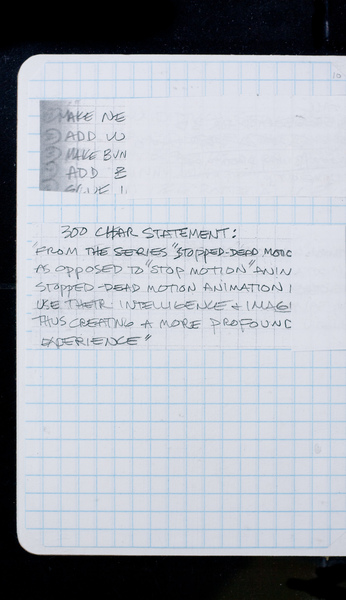 ① MAKE NE
② ADD W
③ MAKE BUN
④ ADD B
300 CHAR STATEMENT:
"FROM THE SERIES "STOPPED-DEAD MOTIC
AS OPPOSED TO "STOP MOTION" ANIN
STOPPED-DEAD MOTION ANIMATION I
USE THEIR INTELLIGENCE & IMAGI
THUS CREATING A MORE PROFOUND
EXPERIENCE"